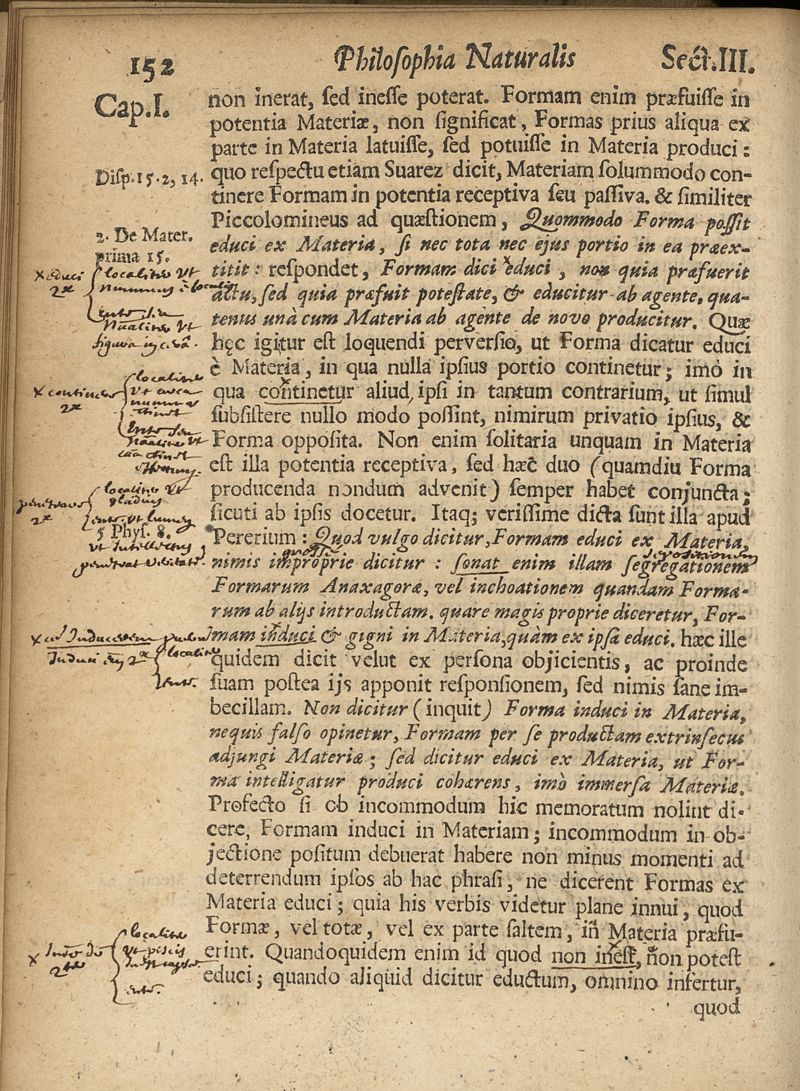 152 Philoſophia Naturalis Sect.III.
Cap.I.
non inerat, ſed ineſſe poterat. Formam enim præfuiſſe in
potentia Materiæ, non ſignificat, Formas prius aliqua ex
parte in Materia latuiſſe, ſed potuiſſe in Materia produci:
Diſp.15.2,14.
quo reſpectu etiam Suarez dicit, Materiam ſolummodo con-
tinere Formam in potentia receptiva ſeu paſſiva. & ſimiliter
2. De Mater.
prima 15.
Piccolomineus ad quæſtionem, Quommodo Forma poſſit
educi ex Materia, ſi nec tota nec ejus portio in ea præex-
titit: reſpondet, Formam dici educi, non quia præfuerit
actu, ſed quia præfuit poteſtate, & educitur ab agente, qua-
tenus unà cum Materia ab agente de novo producitur. Quæ
hęc igitur eſt loquendi perverſio, ut Forma dicatur educi
è Materia, in qua nulla ipſius portio continetur; imò in
qua continetur aliud, ipſi in tantum contrarium, ut ſimul
ſubſiſtere nullo modo poſſint, nimirum privatio ipſius, &
Forma oppoſita. Non enim ſolitaria unquam in Materia
eſt illa potentia receptiva, ſed hæc duo (quamdiu Forma
producenda nondum advenit) ſemper habet conjuncta;
ſicuti ab ipſis docetur. Itaq; veriſſime dicta ſunt illa apud
5 Phyſ. 8.
Pererium: Quod vulgo dicitur, Formam educi ex Materia,
nimis improprie dicitur: ſonat enim illam ſegregationem
Formarum Anaxagoræ, vel inchoationem quandam Forma-
rum ab alijs introductam. quare magis proprie diceretur, For-
mam induci & gigni in Materia, quàm ex ipſa educi. hæc ille
quidem dicit velut ex perſona objicientis, ac proinde
ſuam poſtea ijs apponit reſponſionem, ſed nimis ſane im-
becillam. Non dicitur (inquit) Forma induci in Materia,
nequis falſo opinetur, Formam per ſe productam extrinſecus
adjungi Materiæ; ſed dicitur educi ex Materia, ut For-
ma intelligatur produci cohærens, imò immerſa Materiæ.
Profecto ſi ob incommodum hic memoratum nolint di-
cere, Formam induci in Materiam; incommodum in ob-
jectione poſitum debuerat habere non minus momenti ad
deterrendum ipſos ab hac phraſi, ne dicerent Formas ex
Materia educi; quia his verbis videtur plane innui, quod
Formæ, vel totæ, vel ex parte ſaltem, in Materia præfu-
erint. Quandoquidem enim id quod non ineſt, non poteſt
educi; quando aliquid dicitur eductum, omnino infertur,
quod